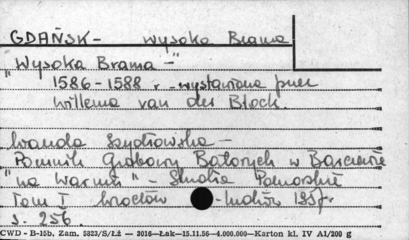 GDAŃSK - Wysoka Brama
"Wysoka Brama -"
1586-1588 r. - wystawiona przez
Willema van der Block.
Wanda Szydłowska -
Pomnik Grobowy Batorych w Barczewie
"na Warmii" - Studia Pomorskie
Tom I Wrocław - Kraków 1957r.
s. 256
CWD - B-15b. Zam. 5823/S/Łż — 3016—Łak—15.11.56—4.000.000—Karton kl. IV A1/200 g